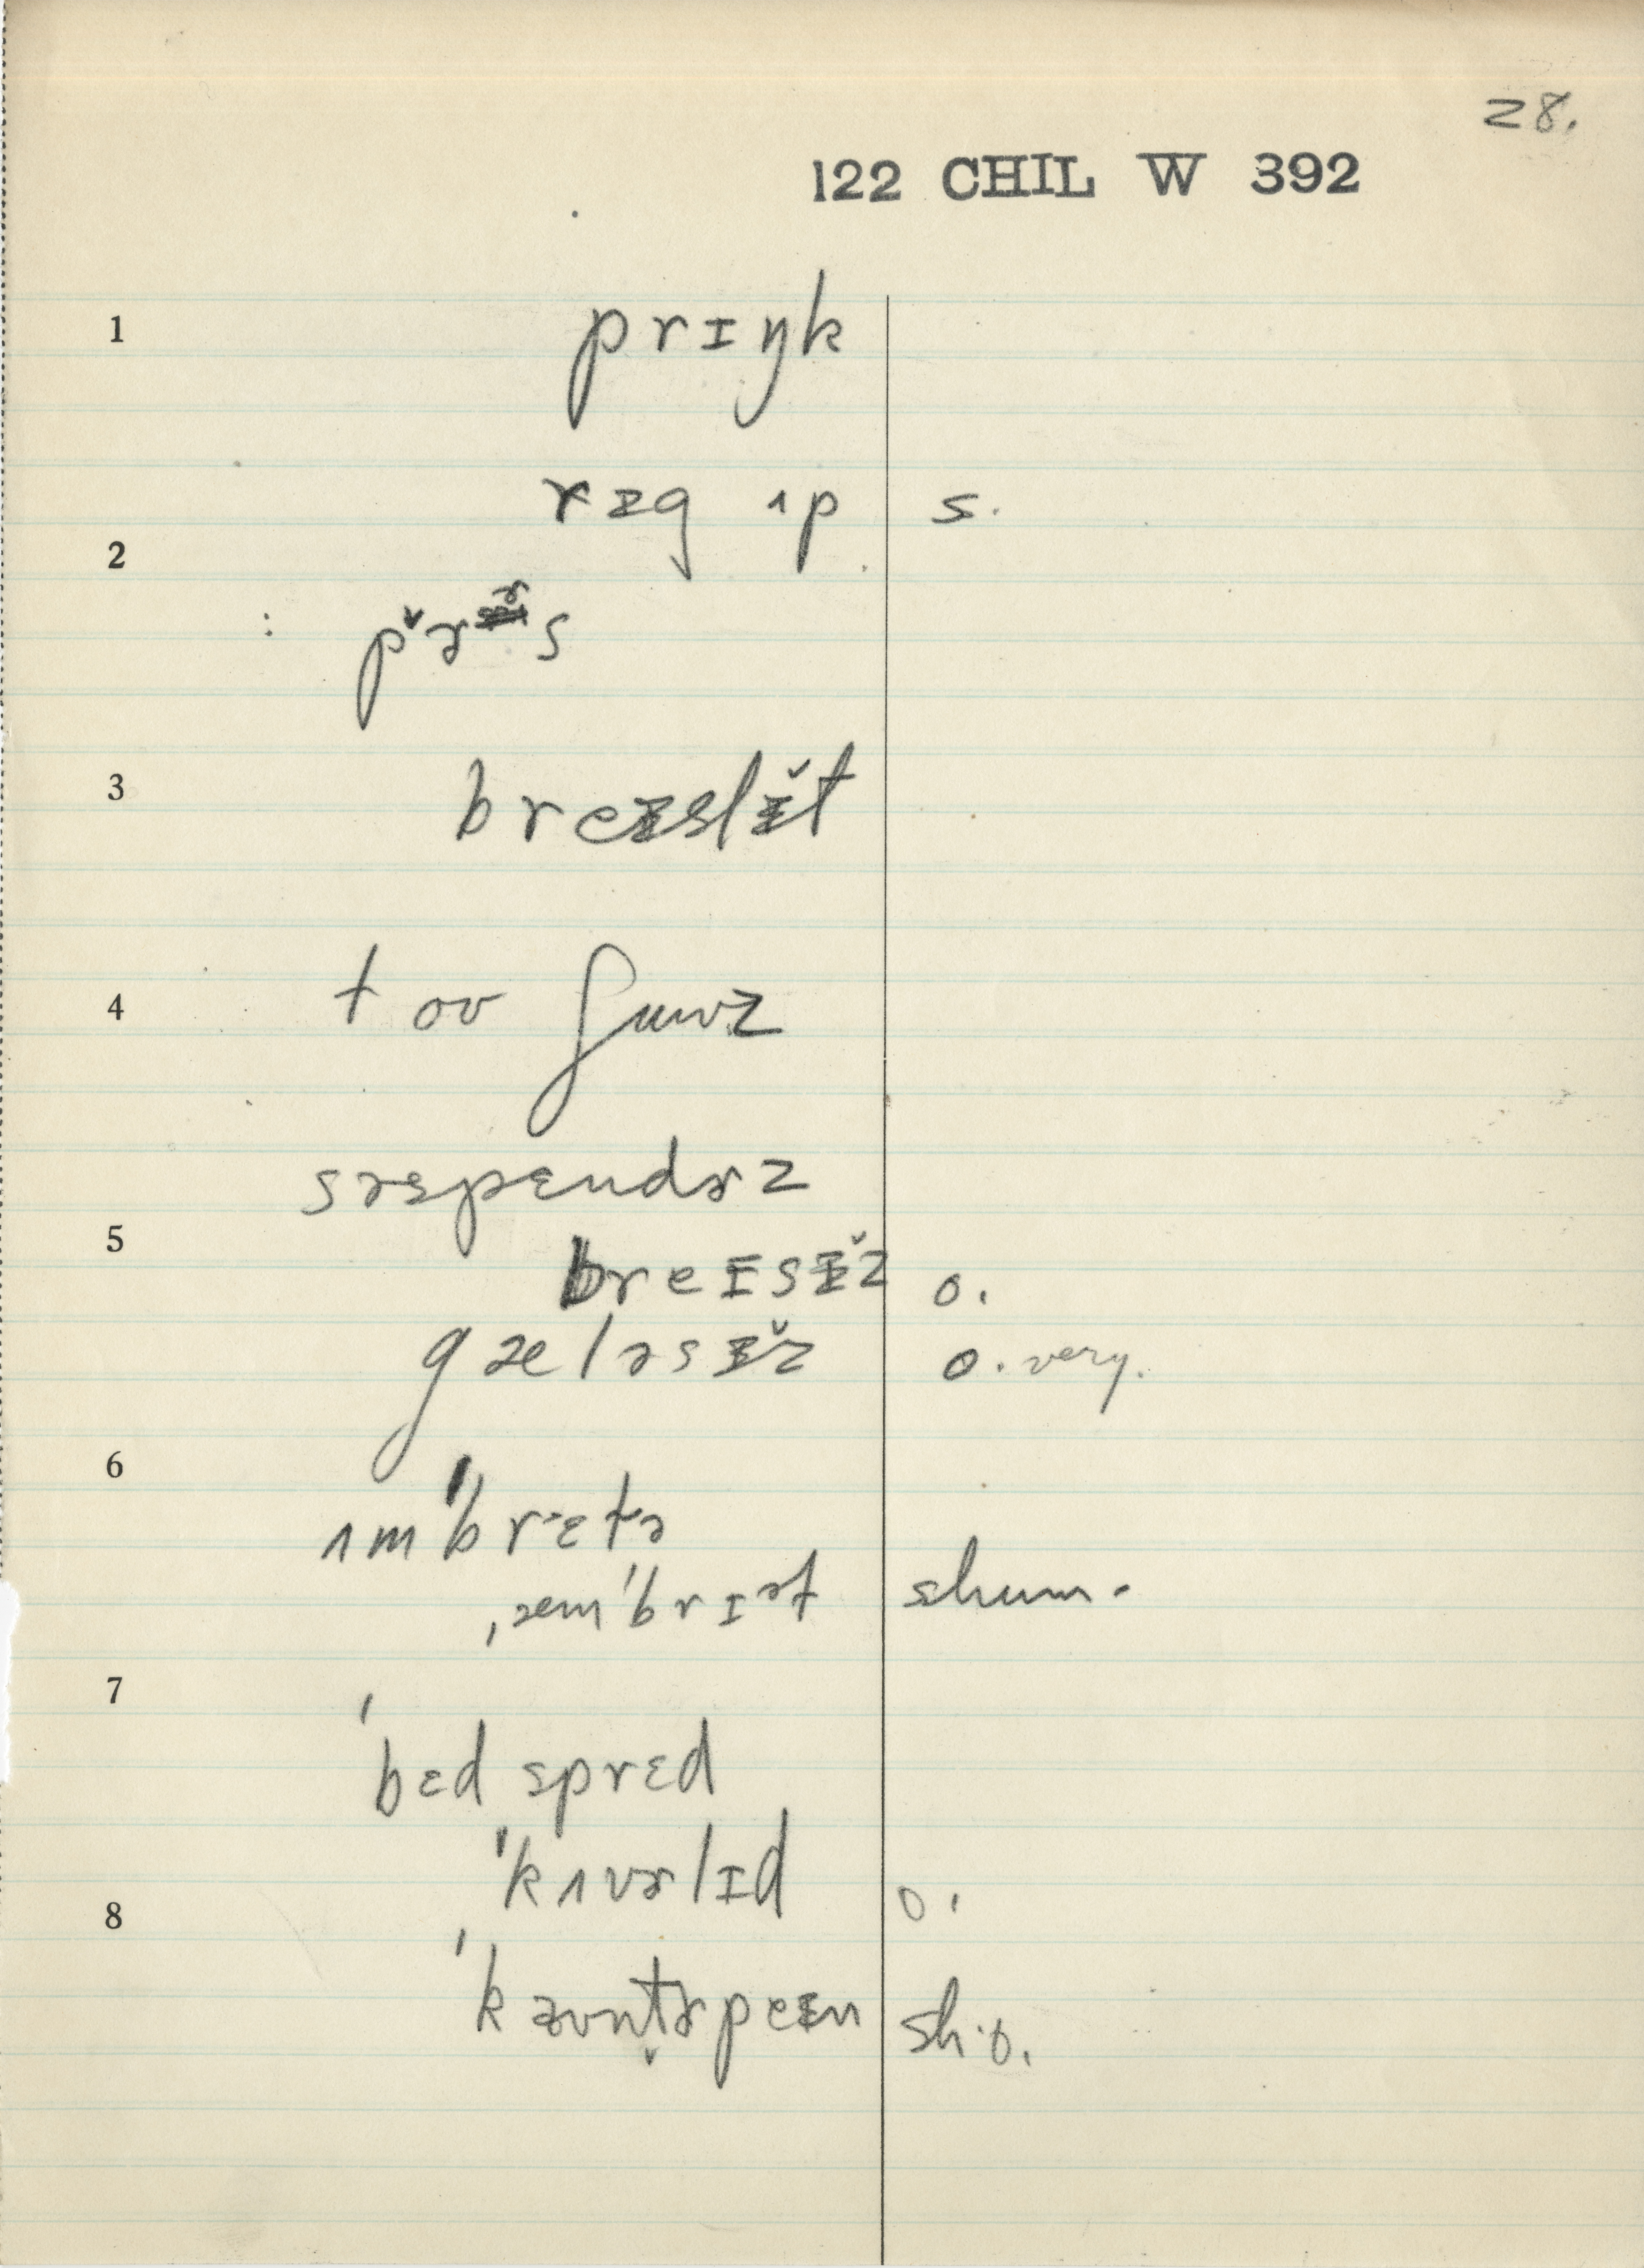 28.
122 CHIL W 392
1 prɪŋk
rɪg ʌp s.
2
: pɚˇɚs
3 breɪslɪ̌t
4 toʊ ʃuuz
səspɛndɚz
5
breɪsɪ̌z o.
gæləsɪ̌z o. very.
6
ʌmˈbrɛtə
ˌæmˈbrɪəl shum.
7
ˈbɛdsprɛd
ˈkʌvɚlɪd o.
8
ˈkaʊntɚpeɪn sh. o.